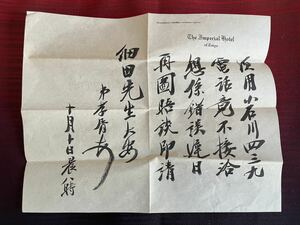 The Imperial Hotel
of Tokyo
江用小石川四三九
電話竟不接洽
想係錯誤遲日
再圖晤談即請
佃田先生台安
弟李
十月十日晨八時